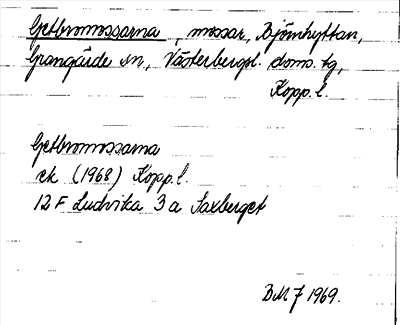 Getbromossarna, mossar, Björnhyttan,
Grangärde sn, Västerbergsl. doms. tg,
Kopp. l.
Getbromossarna
ek (1968) Kopp. l.
12 F Ludvika 3 a Saxberget
BMJ 1969.